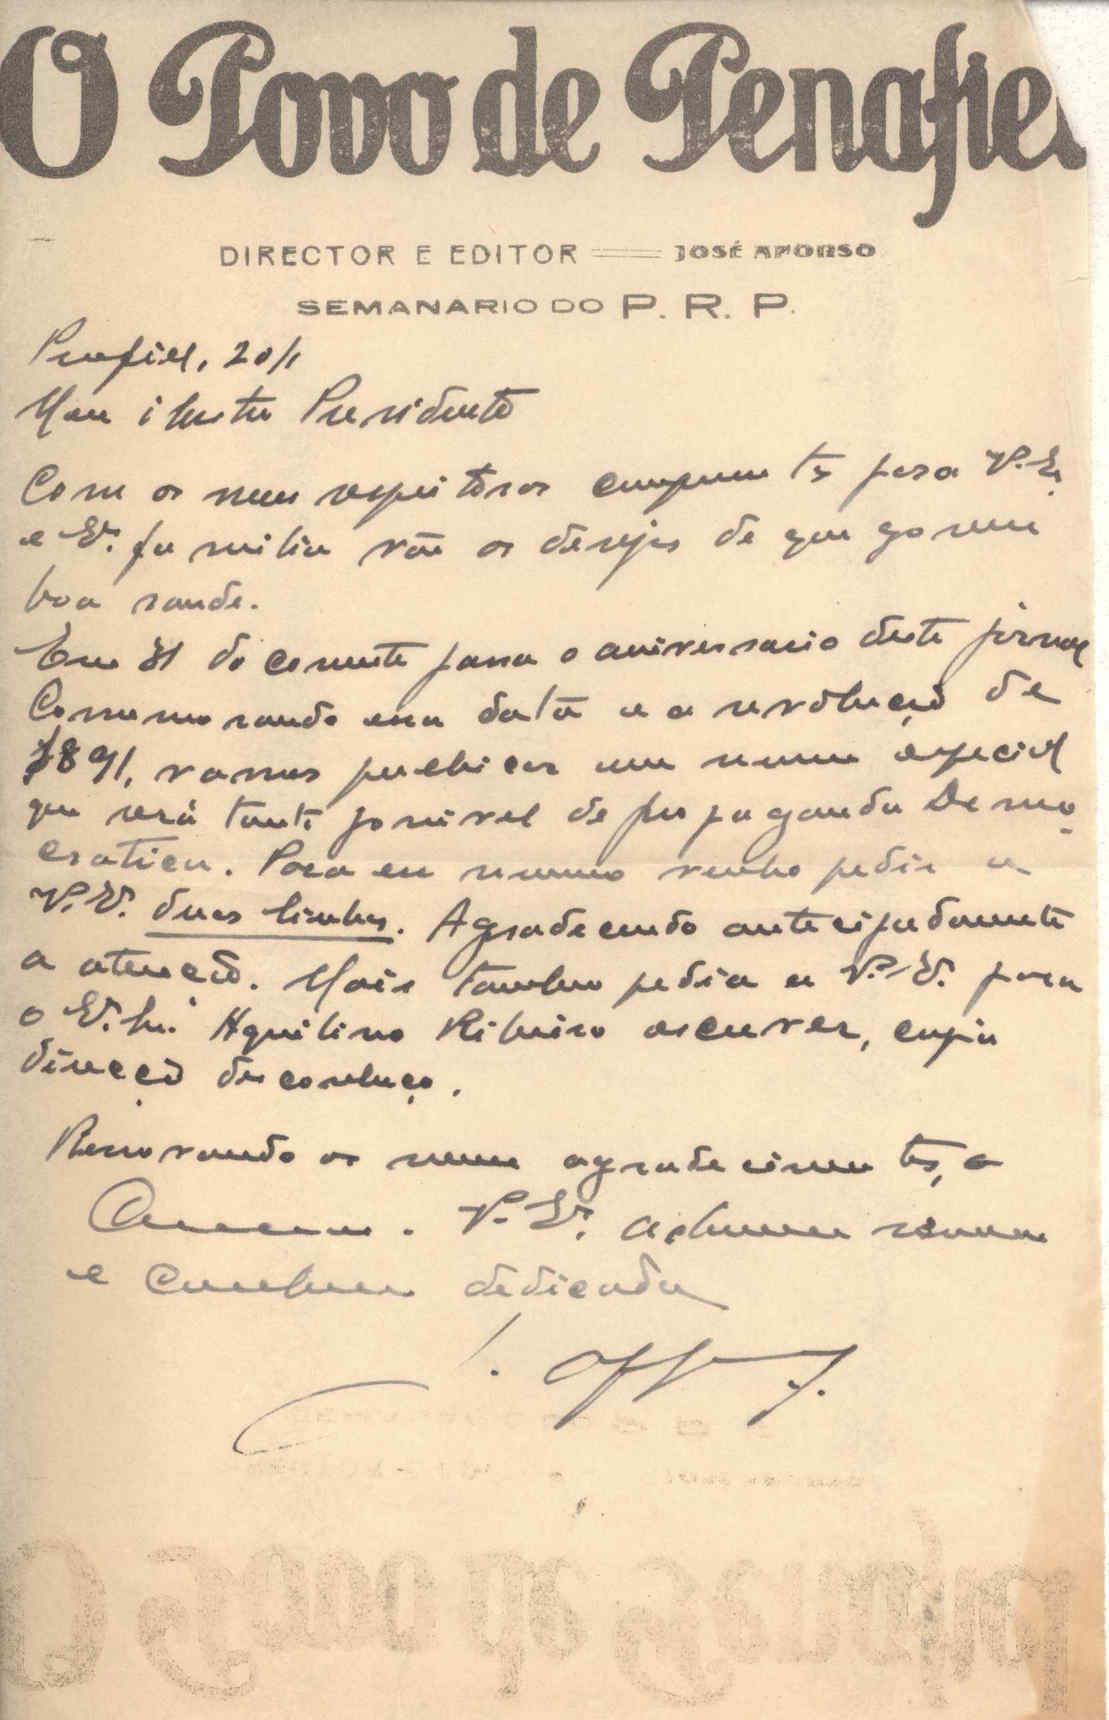 O Povo de Penafiel
DIRECTOR E EDITOR JOSÉ AFONSO
SEMANARIO DO P. R. P.
Penafiel, 20/1
Meu ilustre Presidente
Com os meus respeitosos cumprimentos para V. E.
e E. familia vão os desejos de que gosem
boa saude.
Em 31 do corrente passa o aniversario deste jornal
Comemorando essa data e a revolução de
1891, vamos publicar um numero especial
que será tanto possivel de propaganda Demo-
cratica. Para esse numero venho pedir a
V. E. duas linhas. Agradecendo antecipadamente
a atenção. Mais tambem pedia a V. E. para
o E. Sr. Aquilino Ribeiro escrever, cuja
direcção desconheço.
Renovando os meus agradecimentos, a
V. E.
e dedicado